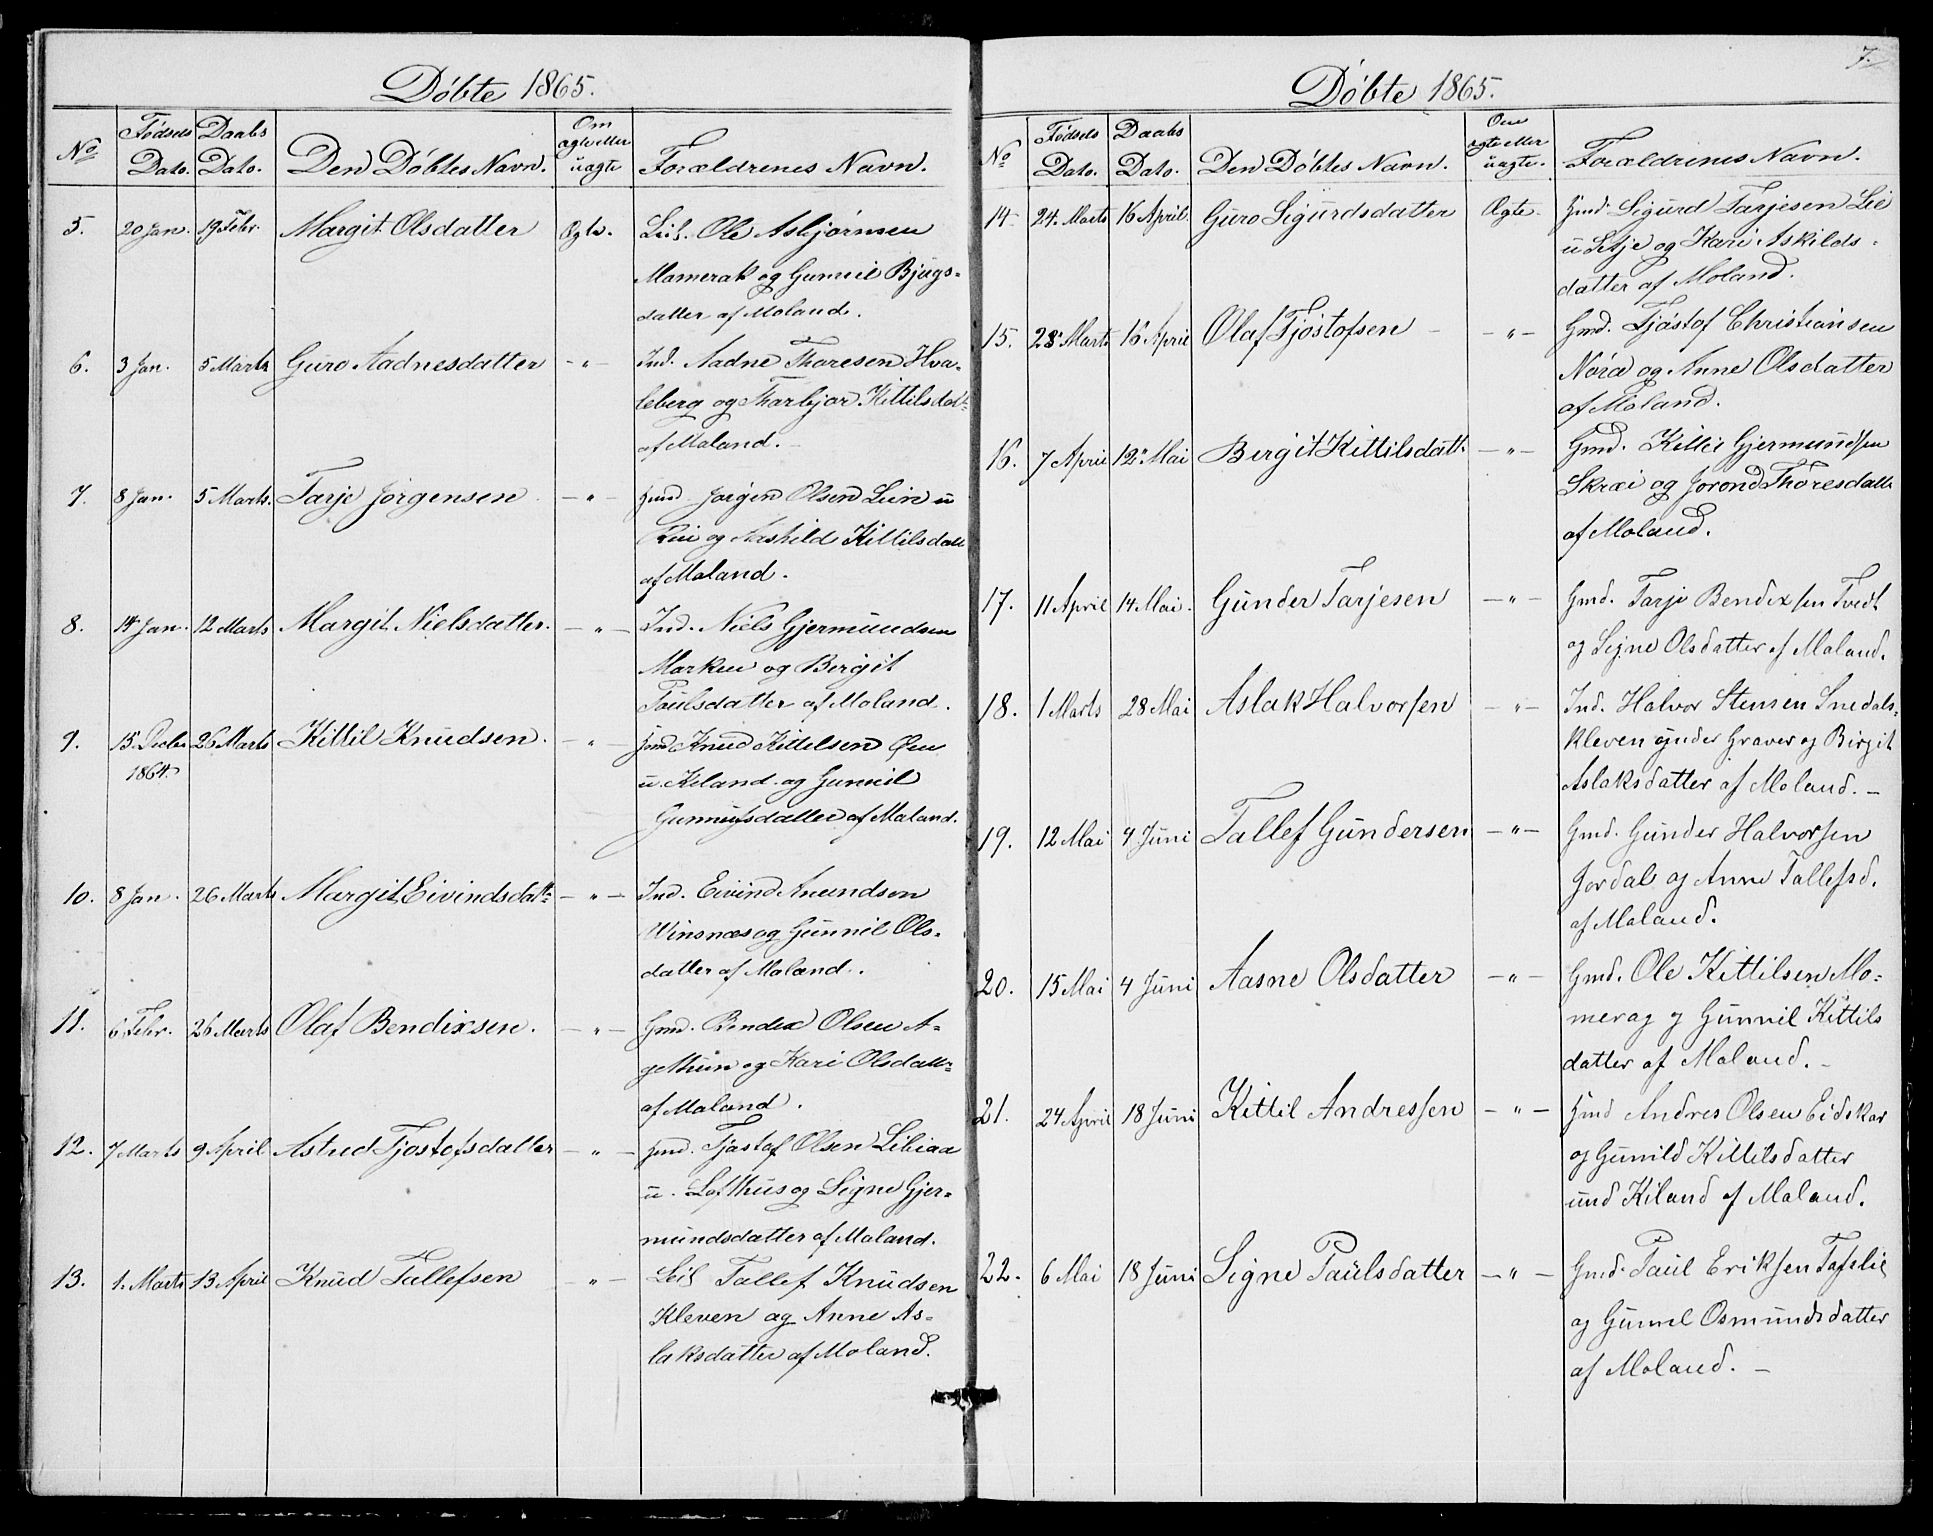 Døbte 1865.
No Fødsels Dato. Daabs Dato. Den Døbtes Navn. Om ægte eller uægte Forældrenes Navn.
5. 20 Jan. 19 Febr. Margit Olsdatter Ægte. Leil. Ole Asbjørnsen
Mamerak og Gunnil Bjugs-
datter af Moland.
6. 3 Jan. 5 Marts Guro Aadnesdatter - " - Ind. Aadne Thoresen Hva-
leberg og Thorbjør Kittilsdatt.
af Moland.
7. 8 Jan. 5 Marts. Tarje Jørgensen - " - Hmd. Jørgen Olsen Lien u
og Aashild Kittilsdatt
af Moland.
8. 14 Jan. 12 Marts Margit Nielsdatter. - " - Ind. Niels Gjermundsen
Marken og Bergit
Paulsdatter af Moland.
9. 15 Decbr 1864. 26 Marts Kittil Knudsen. - " - Hmd Knud Kittelsen Øen
u. Kiland og Gunnil
Gunnufsdatter af Moland.
10. 8 Jan. 26 Marts Margit Eivindsdatt: - " - Ind. Eivind Anundson
Winsnæs og Gunnil Ols-
datter af Moland.
11. 6 Febr. 26 Marts Olaf Bendixsen. - " - Gmd. Bendix Olsen A-
gethun og Kari Olsdatt:
af Moland.
12. 7 Marts 9 April Astrid Tjostofsdatter - " - Hmd. Tjostof Olsen Libiaa
u. Lofthus og Signe Gjer-
mundsdatter af Moland.
13. 1. Marts 13 April Knud Tallefsen - " - Leil Tallef Knudsen
Kleven og Anne As-
laksdatter af Moland.
7.
Døbte 1865.
No Fødsels Dato. Daabs Dato. Den Døbtes Navn. Om ægte eller uægte. Forældrenes Navn.
14 24. Marts 16 April. Guro Sigurdsdatter Ægte. Hmd. Sigurd Tarjesen Lie
u Sitje og Kari Askilds-
datter af Moland.
15. 28 Marts 16 April Olaf Tjøstofsen - - " - Gmd. Tjøstof Christiansen
Nòra og Anne Olsdatter
af Moland.
16. 7 April 12 Mai Bergit Kittilsdatt. - " - Gmd. Kittil Gjermundsen
Skræi og Jorond Thoresdatt
af Moland.
17. 11 April 14 Mai. Gunder Tarjesen - " - Gmd. Tarje Bendixsen Tvedt
og Signe Olsdatter af Moland.
18. 1 Marts 28 Mai Aslak Halvorsen - " - Ind. Halvor Stensen Snedals-
kleven under Graver og Birgit
Aslaksdatter af Moland. -
19. 12 Mai 4 Juni Tallef Gundersen - " - Gmd. Gunder Halvorsen
Jordal og Anne Tallefsd.
af Moland.
20. 15 Mai 4 Juni Aasne Olsdatter - " - Gmd. Ole Kittilsen Mo-
merag og Gunnil Kittils
datter af Moland. -
21. 24 April 18 Juni Kittil Andressen - " - Hmd Andres Olsen Eidskar
og Gunild Kittilsdatter
und Kiland af Moland.
22. 6 Mai 18 Juni Signe Paulsdatter - " - Gmd. Paul Eriksen Tafslie
og Gunnil Osmundsdatter
af Moland. -